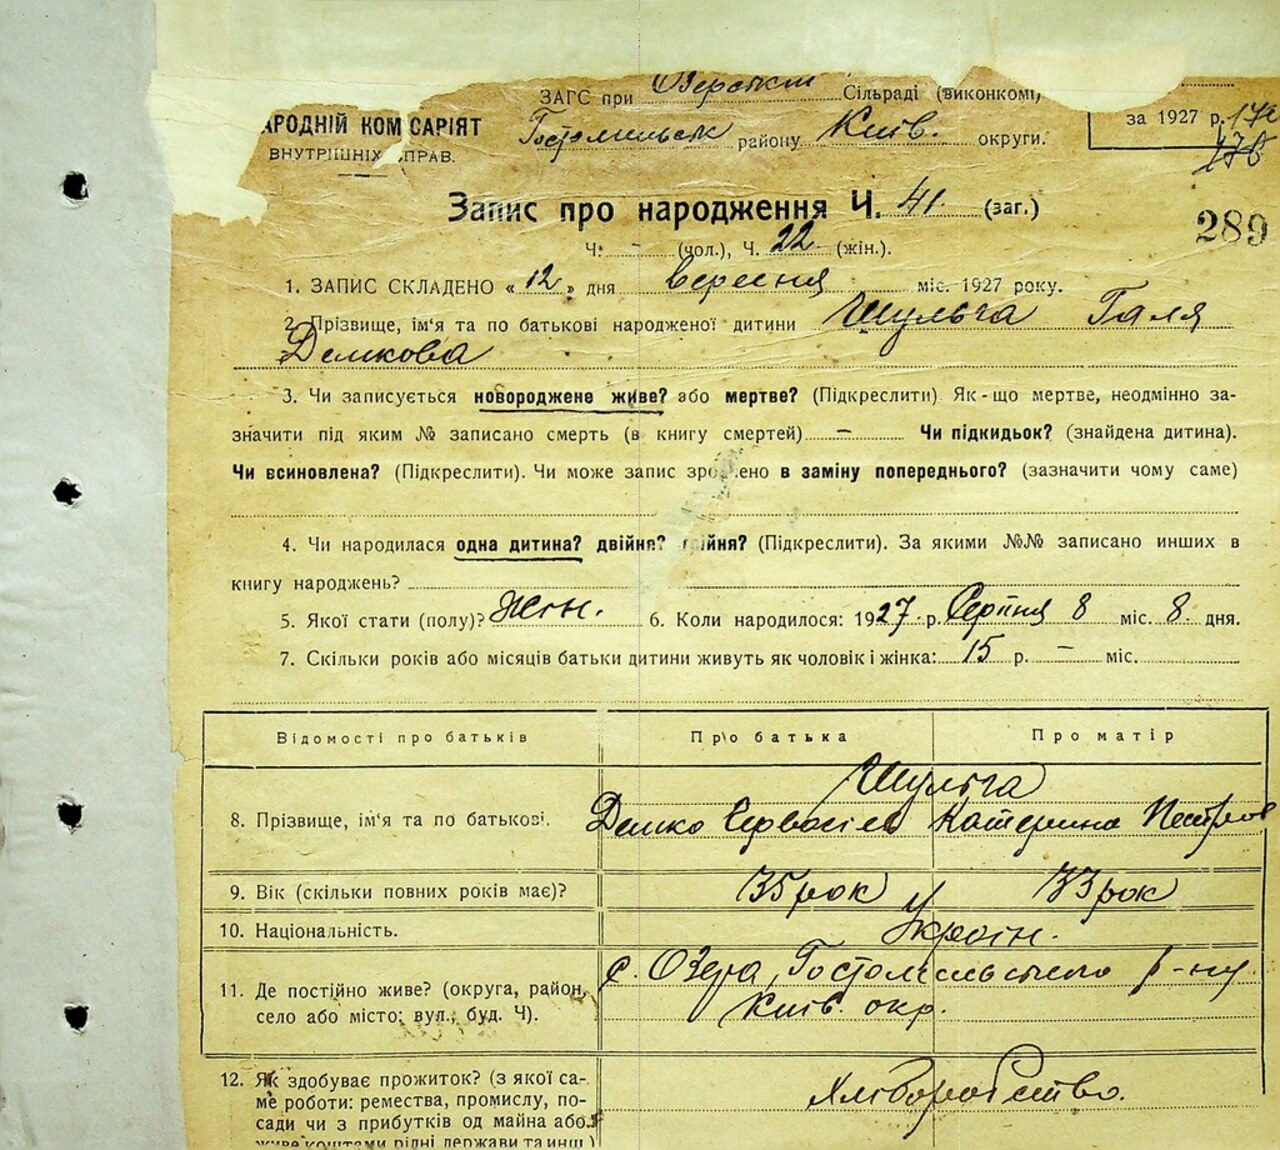 ЗАГС при Озерськім Сільраді (виконкомі)
АРОДНІЙ КОМ САРІЯТ
ВНУТРІШНІХ ПРАВ.
Гостомильськ району Київ. округи.
за 1927 р. 172
178
Запис про народження Ч. 41. (заг.)
289
Ч: - (чол.), Ч. 22 (жін.).
1. ЗАПИС СКЛАДЕНО « 12 » дня вересня міс. 1927 року.
2. Прізвище, ім'я та по батькові народженої дитини Шульга Галя
Демкова
3. Чи записується новороджене живе? або мертве? (Підкреслити) Як-що мертве, неодмінно за-
значити під яким № записано смерть (в книгу смертей) — Чи підкидьок? (знайдена дитина).
Чи всиновлена? (Підкреслити). Чи може запис зро ено в заміну попереднього? (зазначити чому саме)
4. Чи народилася одна дитина? двійня? ійня? (Підкреслити). За якими №№ записано инших в
книгу народжень?
5. Якої стати (полу)? жін. 6. Коли народилося: 1927. р. Серпня 8 міс. 8. дня.
7. Скільки років або місяців батьки дитини живуть як чоловік і жінка: 15 р. — міс.
Відомості про батьків Про батька Про матір
Шульга
8. Прізвище, ім'я та по батькові. Демко Катерина Петров
9. Вік (скільки повних років має)? 35 рок 33 рок
10. Національність. Україн.
11. Де постійно живе? (округа, район, с. Озера, Гостомельського р-ну
село або місто; вул., буд. Ч). Київ. окр.
12. Як здобуває прожиток? (з якої са- Хліборобство.
ме роботи: ремества, промислу, по-
сади чи з прибутків од майна або
живе коштами рідні держави та инш.)